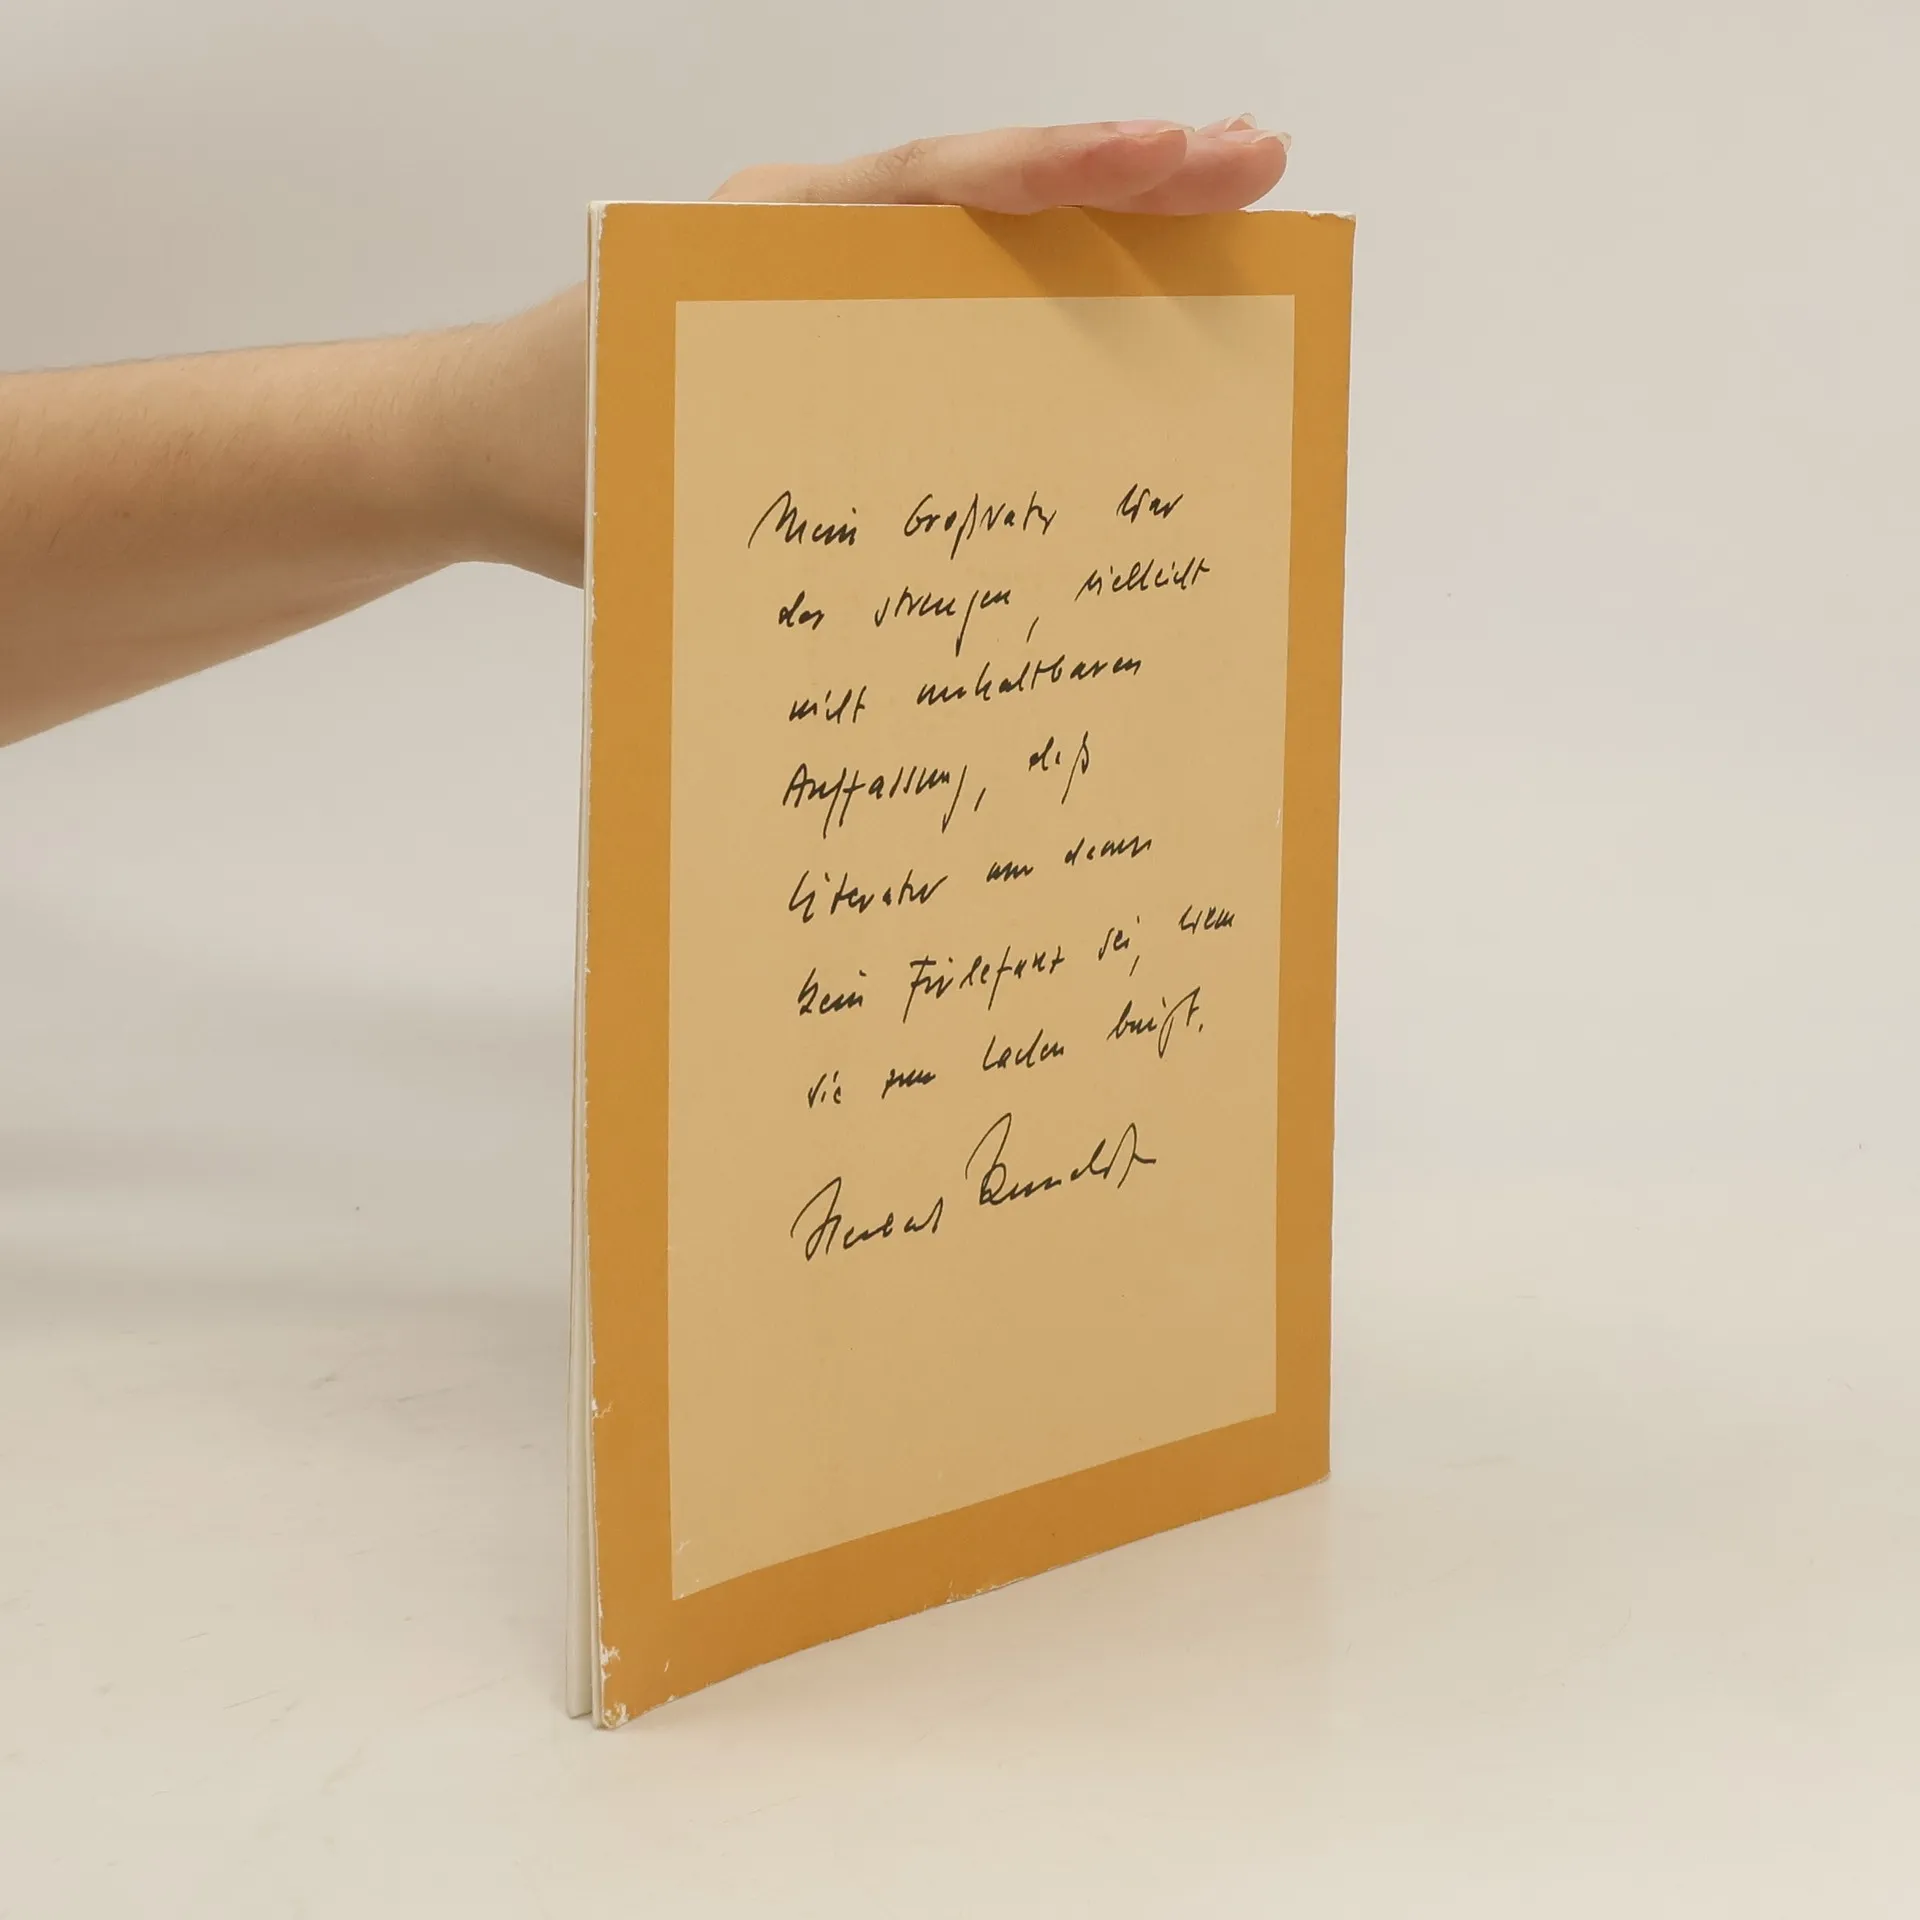 Mein Großvater war
der strengen, vielleicht
nicht unhaltbaren
Auffassung, daß
Literatur nur dann
kein Firlefanz sei, wenn
sie zum Lachen bringt.